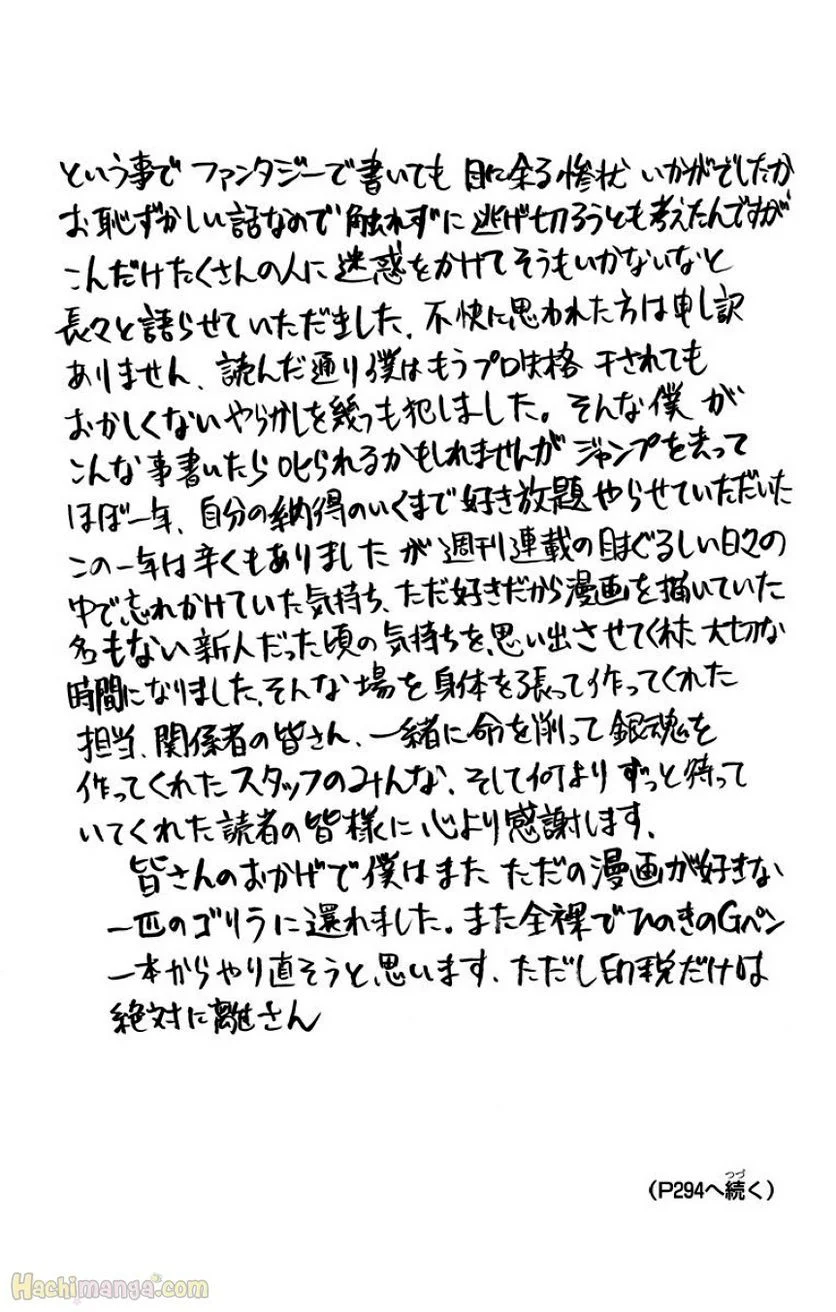 という事で ファンタジーで書いても 目に余る惨状 いかがでしたか
お恥ずかしい話なので 触れずに 逃げ切ろうとも考えたんですが
こんだけたくさんの人に 迷惑をかけて そうもいかないなと
長々と語らせていただました、不快に思われた方は申し訳
ありません、読んだ通り僕はもうプロ失格 干されても
おかしくないやらかしを幾つも犯しました。そんな僕 が
こんな事書いたら叱られるかもしれませんが ジャンプを去って
ほぼ一年、自分の納得のいくまで好き放題やらせていただいた
この一年は辛くもありました が 週刊連載の目まぐるしい日々の
中で忘れかけていた気持ち、ただ好きだから漫画を描いていた
名もない新人だった頃の気持ちを、思い出させてくれた大切な
時間になりました、そんな場を身体を張って作ってくれた
担当、関係者の皆さん、一緒に命を削って銀魂を
作ってくれたスタッフのみんな、そして何より ずっと待って
いてくれた読者の皆様に心より感謝します、
皆さんのおかげで僕はまた ただの漫画が好きな
一匹のゴリラに還れました。また全裸でひのきのGペン
一本からやり直そうと、思います、ただし印税だけは
絶対に離さん
(P294へ続く)
つづ
Hachimanga.com